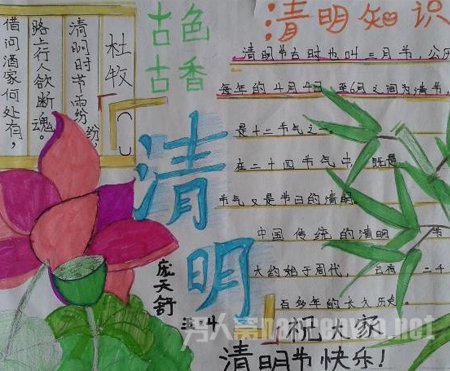 杜牧
清明时节雨纷纷,
路上行人欲断魂。
借问酒家何处有,
古色
古香
清明
庞天舒
三4
清明知识
清明节古时也叫三月节,公历
每年的4月4日 至6日之间为清节,
是十二节气之
在二十四节气中,既是
节气又是节日的清明
中国传统的清明 节
大约始于周代,已有 二千
百多年的 历史
祝大家
清明节快乐!